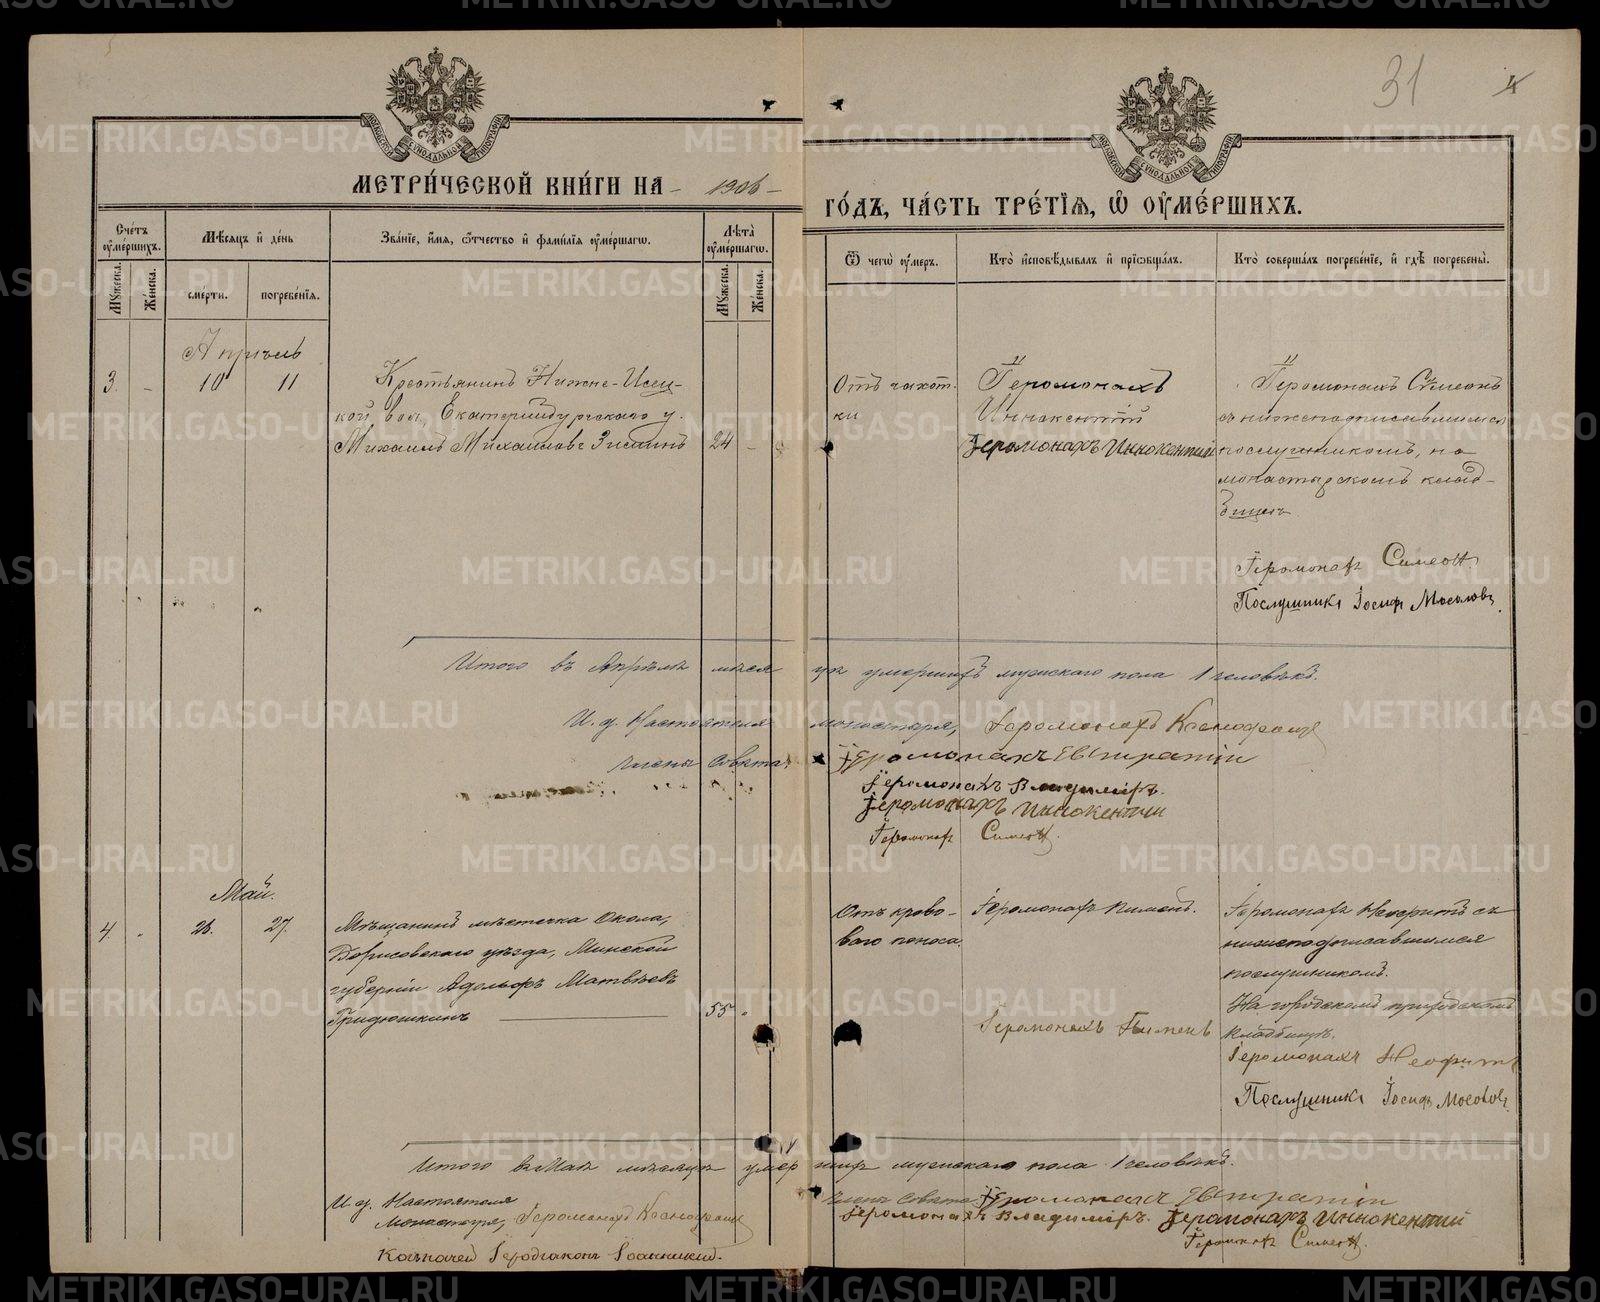 31
4
МОСКОВСКОЙ СѴНОДАЛЬНОЙ ТИПОГРАФІИ
МОСКОВСКОЙ СѴНОДАЛЬНОЙ ТИПОГРАФІИ
МЕТРИ́ЧЕСКОЙ КНИ́ГИ НА 1906
ГО́ДЪ, ЧА́СТЬ ТРЕ́ТІѦ, Ѡ ОУ҆МЕ́РШИХЪ.
Сче́тъ оу҆ме́ршихъ.
Мѣ́сѧцъ и҆ де́нь
Зва́нїе, и҆́мѧ, ѻ҆́тчество и҆ фами́лїѧ оу҆ме́ршагѡ.
Лѣ́та оу҆ме́ршагѡ.
Ѿ чегѡ̀ оу҆́меръ.
Кто̀ и҆сповѣ́дывалъ и҆ прїѻбща́лъ.
Кто̀ соверша́лъ погребе́нїе, и҆ гдѣ̀ погребены̀.
Мꙋ́жеска.
Же́нска.
сме́рти.
погребе́нїѧ.
Мꙋ́жеска.
Же́нска.
Апрѣль
3. - 10 11
Крестьянинъ Нижне-Исец-
кой вол. Екатеринбургскаго у.
Михаилъ Михаиловъ Зиминъ 24 -
Отъ чахот-
ки
Іеромонахъ
Иннокентій
Іеромонахъ Иннокентій
Іеромонахъ Сѵмеонъ
съ нижеподписавшимся
послушникомъ, на
монастырскомъ клад-
бищѣ
Іеромонахъ Симеонъ
Послушникъ Іосифъ Мосоловъ
Итого въ Апрѣлѣ мѣсяцѣ умершихъ мужскаго пола 1 человѣкъ.
И. д. Настоятеля монастыря, Іеромонахъ Ксенофонтъ
Члены Совѣта: Іеромонахъ Евпратій
Іеромонахъ Владиміръ.
Іеромонахъ Иннокентій
Іеромонахъ Симеонъ.
Май.
4. 27.
Мѣщанинъ мѣстечка Окола,
Борисовскаго уѣзда, Минской
губерніи Адольфъ Матвѣевъ
Гридюшкинъ 55
Отъ крово-
ваго поноса.
Іеромонахъ Пименъ.
Іеромонахъ Пименъ
Іеромонахъ Неофитъ съ
нижеподписавшимся
послушникомъ.
На городскомъ
кладбищѣ.
Іеромонахъ Неофитъ
Послушникъ Іосифъ Мосоловъ
Итого въ Маѣ мѣсяцѣ умершихъ мужскаго пола 1 человѣкъ.
И. д. Настоятеля
монастыря, Іеромонахъ Ксенофонтъ
Члены Совѣта: Іеромонахъ Евпратій
Іеромонахъ Владиміръ. Іеромонахъ Иннокентій
Іеромонахъ Симеонъ.
Казначей Іеродіаконъ Іоанникій.
METRIKI.GASO-URAL.RU